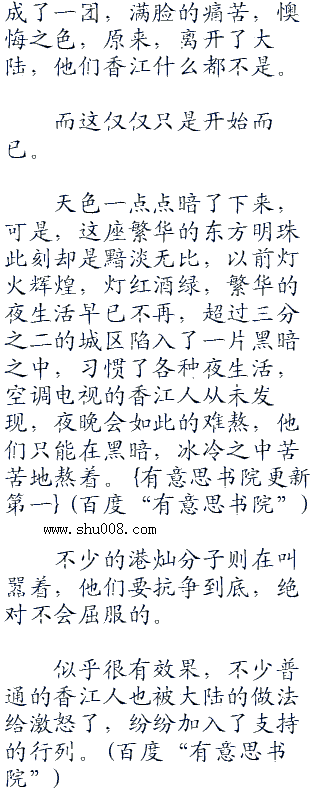 成了一团，满脸的痛苦，懊
悔之色，原来，离开了大
陆，他们香江什么都不是。
而这仅仅只是开始而
已。
天色一点点暗了下来，
可是，这座繁华的东方明珠
此刻却是黯淡无比，以前灯
火辉煌，灯红酒绿，繁华的
夜生活早已不再，超过三分
之二的城区陷入了一片黑暗
之中，习惯了各种夜生活，
空调电视的香江人从未发
现，夜晚会如此的难熬，他
们只能在黑暗，冰冷之中苦
苦地熬着。{有意思书院更新
第一}(百度“有意思书院”)
www.shu008.com
不少的港灿分子则在叫
嚣着，他们要抗争到底，绝
对不会屈服的。
似乎很有效果，不少普
通的香江人也被大陆的做法
给激怒了，纷纷加入了支持
的行列。(百度“有意思书
院”)